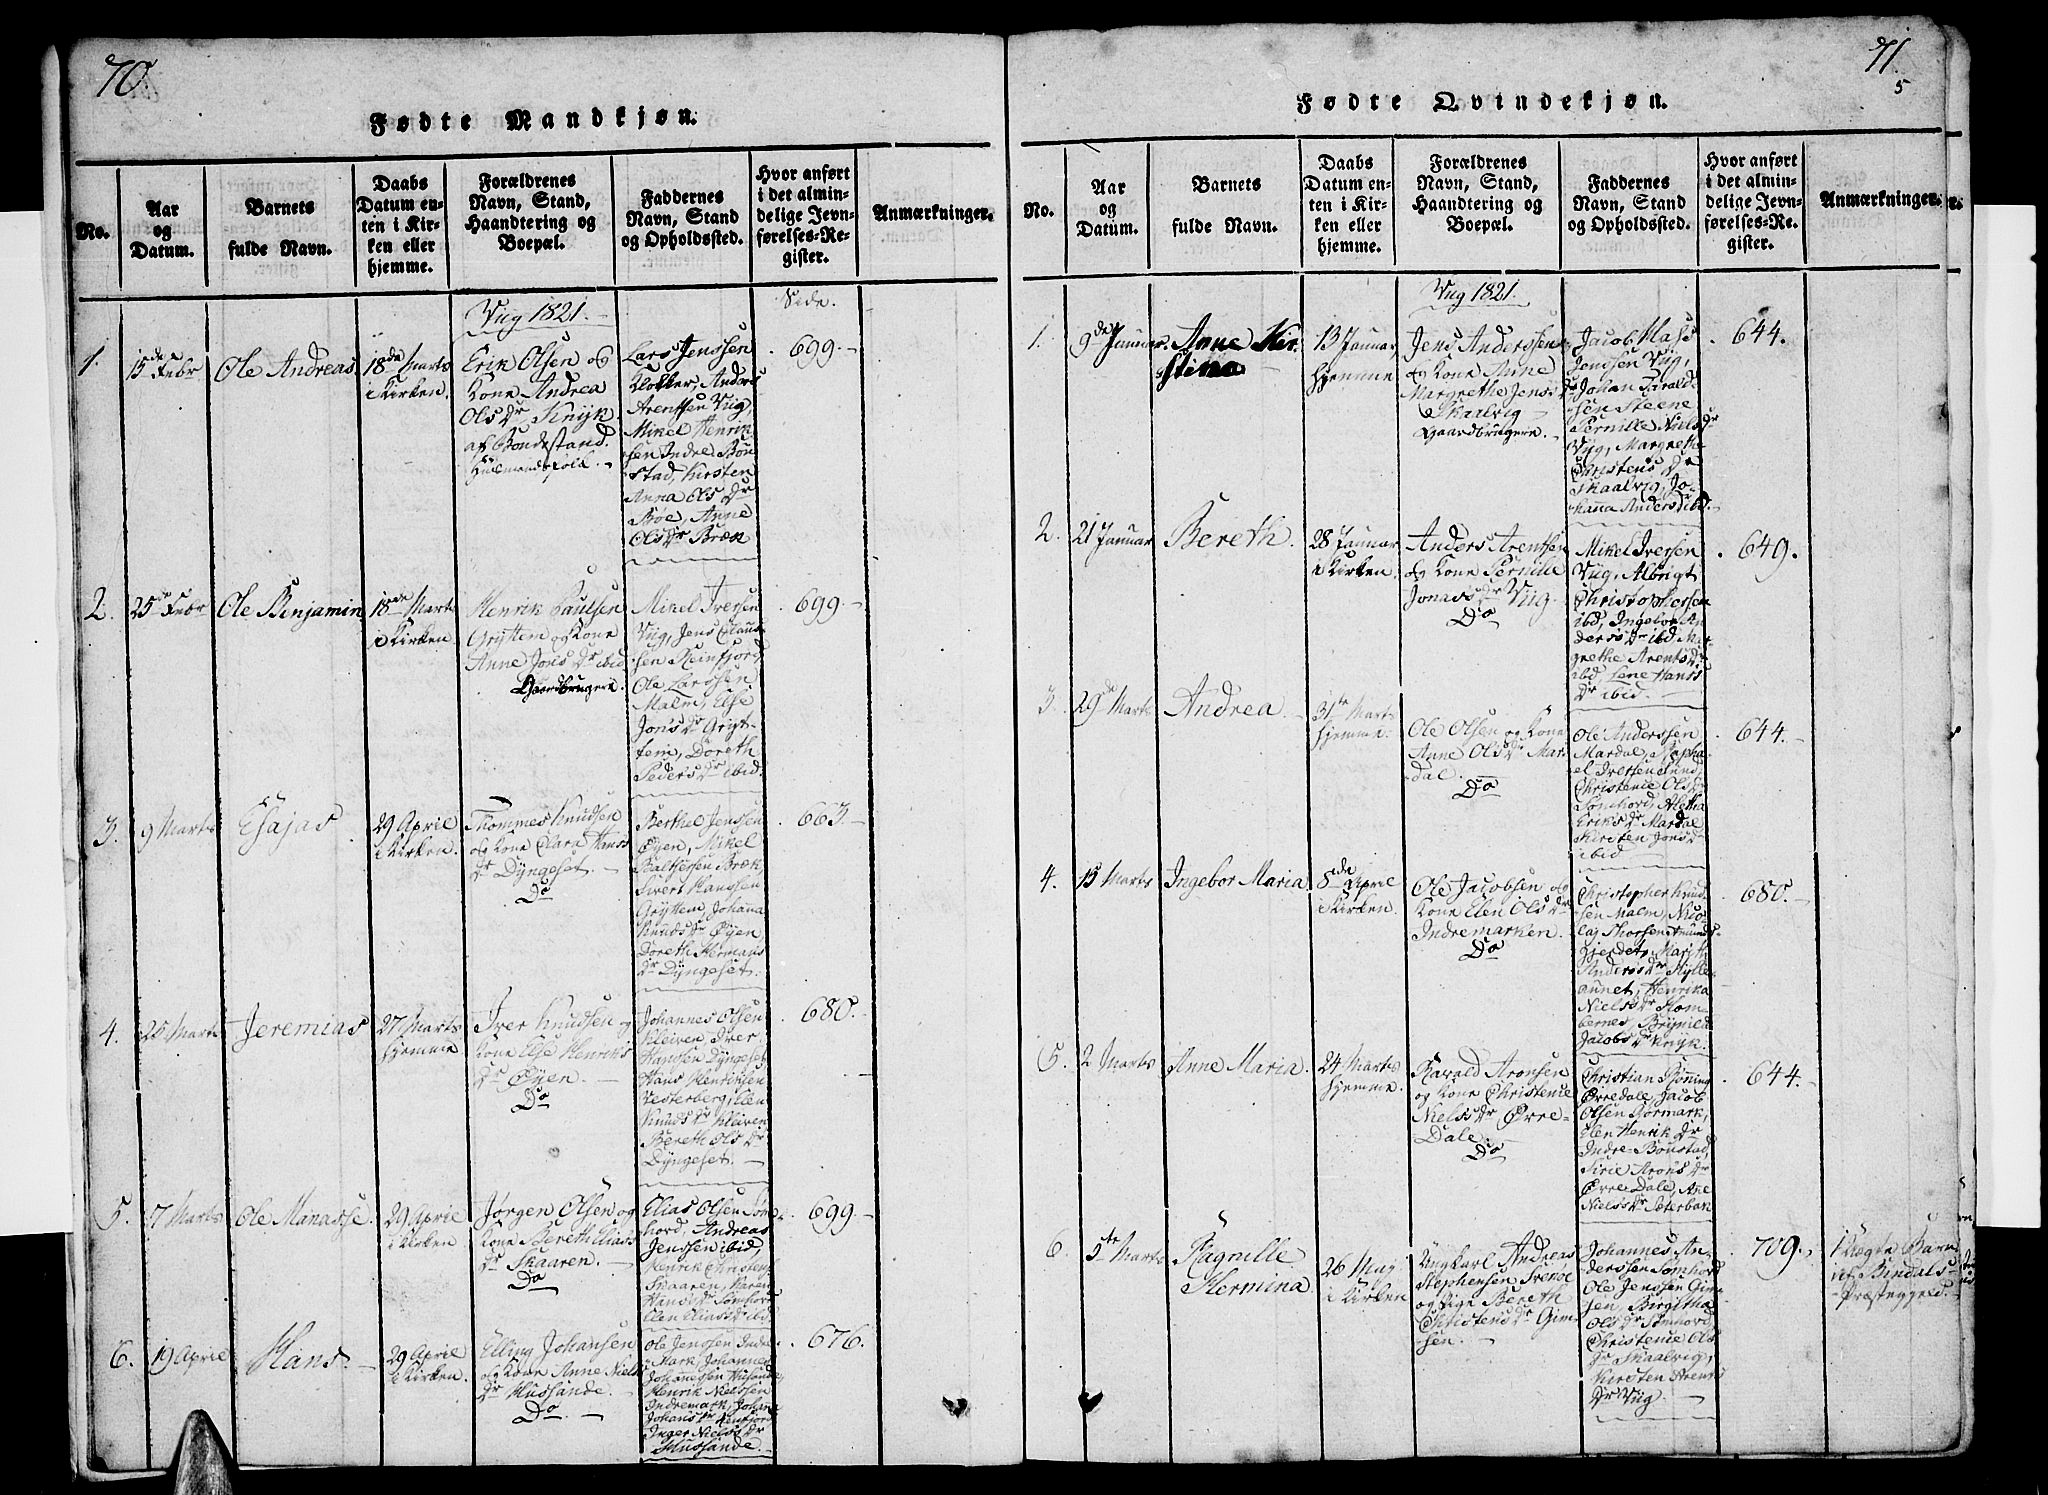 70.
Fødte Mandkjøn.
No.
Aar
og
Datum.
Barnets
fulde Navn.
Daabs
Datum en-
ten i Kir-
ken eller
hjemme.
Forældrenes
Navn, Stand,
Haandtering og
Boepæl.
Faddernes
Navn, Stand
og Opholdssted.
Hvor anført
i det almin-
delige Jevn-
førelses-Re-
gister.
Anmærkninger.
Vug 1821.
Side.
1.
15de Febr
Ole Andreas
18de Marts
i Kirken.
Erik Olsen og
Kone Andrea
Ols Dr Knyk
af Bondestand.
Huusmandsfolk.
Lars Jenssen
Klokker, Anders
Arentsen Vug,
Mikel Henrik
sen Indre Bøn
stad, Kirsten
Anna Ols Dr
Bøe, Anne
Ols Dr Bræk
699.
2.
25de Febr
Ole Benjamin
18de Marts
i Kirken.
Henrik Paulsen
Grÿttem og Kone
Anne Jons Dr ibid
Gaardbrugere.
Mikel Iversen
Vug, Jens Claus-
sen Reinfjord,
Ole Larssen
Malm, Else
Jons Dr Grÿt-
tem, Doreth
Peders Dr ibid.
699.
3.
9 Marts
Esajas
29 April
i Kirken.
Thommes Knudsen
og Kone Clara Hans
Dr Dÿngeset.
Do
Berthel Jenssen
Øyen, Mikel
Balthersen Bræk
Sivert Hanssen
Grÿttem, Johanna
Knuds Dr Øyen
Doreth Hermans
Dr Dÿngeset.
663.
4.
25 Marts
Jeremias
27 Marts
hjemme
Iver Knudsen og
Kone Else Henriks
Dr Øyen.
Do
Johannes Olsen
Kleiven, Iver
Hanssen Dÿngeset
Hans Henriksen
Vesterberg, Elen
Knuds Dr Kleiven
Bereth Ols Dr
Dÿngeset.
680.
5.
7 Marts
Ole Manasse.
29 April
i Kirken
Jørgen Olsen og
Kone Bereth Elias
Dr Skaaren.
Do
Elias Olsen Søm-
hord, Andreas
Jenssen ibid,
Henrik Christens
Skaaren, Karen
Hans Dr Sømhord
Elen Elias Dr ibd
699.
6.
19 April
Hans.
29 April
i Kirken.
Elling Johansen
og Kone Anne Niels
Dr Hussånde.
Do.
Ole Jenssen Indre
Mark, Johannes
Johanessen Husånde
Henrik Nielssen
Indremark, Johana
Johans Dr
Inger Niels Dr
Hussånde.
676.
71.
5
Fødte Qvindekjøn.
No.
Aar
og
Datum.
Barnets
fulde Navn.
Daabs
Datum en-
ten i Kir-
ken eller
hjemme.
Forældrenes
Navn, Stand,
Haandtering og
Boepæl.
Faddernes
Navn, Stand
og Opholdssted.
Hvor anført
i det almin-
delige Jevn-
førelses-Re-
gister.
Anmærkninger.
Vug 1821.
1.
9de Januar.
Anne Kir-
stina
13 Januar,
hjemme
Jens Anderssen
og Kone Mine
Margrethe Jens Dr
Skaalvig
Gaardbrugere.
Jacob Mass
Jenssen Vug,
Johan
sen Steene
Pernille Niels Dr
Vug, Margrethe
Christens Dr
Skaalvig, Jo-
hana Anders D ibid.
644.
2.
21 Januar
Bereth.
28 Januar
i Kirken.
Anders Arentsen
og Kone Pernille
Jonas Dr Vug.
Do
Mikel Iversen
Vug, Albrigt
Christophersen
ibd, Ingebor An
ders Dr ibd. Mar
grethe Arents Dr
ibd, Lene Hans
Dr ibid.
649.
3.
29de Marts
Andrea
31te Marts
hjemme.
Ole Olsen og Kone
Anne Ols Dr Mar-
dal.
Do
Ole Anderssen
Mardal, Rapha-
el Iversen Sund,
Christence Ols
Sømhord, Aletha
Eriks Dr Mardal
Kirsten Jons Dr
ibid
644.
4.
15 Marts
Ingebor Maria
8de April
i Kirken.
Ole Jacobsen og
Kone Elen Ols Dr
Indremarken.
Do
Christopher Knud-
sen Malm, Nico-
laj Thorsen Amunds-
gjerdet, Marith
Anders Dr Hylle-
annet, Henrika
Niels Dr Hom-
bernes, Brynild
Jacobs Dr Knyk.
680.
5.
2 Marts
Anne Maria.
24 Marts
hjemme.
Harald Aronsen
og Kone Christence
Niels Dr Ørre-
Dale.
Do
Christian Røning
Ørredale, Jacob
Olsen Børmark,
Elen Henrik Dr
Indre-Bønstad,
Sirie Arons Dr
Ørre Dale, Ane
Niels Dr Sæterban
644.
6.
5te Marts
Ragnille
Hermina
26 May
i Kirken
Ungkarl Andreas
Stephensen Trenøe
og Pige Bereth
Christens Dr Gim-
sen.
Johannes An-
derssen Sømhord
Ole Jenssen Gim-
sen, Birgitha
Ols Dr Sømhord,
Christence Ols
Dr Skaalvig,
Kirsten Arents
Dr Vug.
709.
1 Uægte Barn
af Bindals
Præstegjeld.